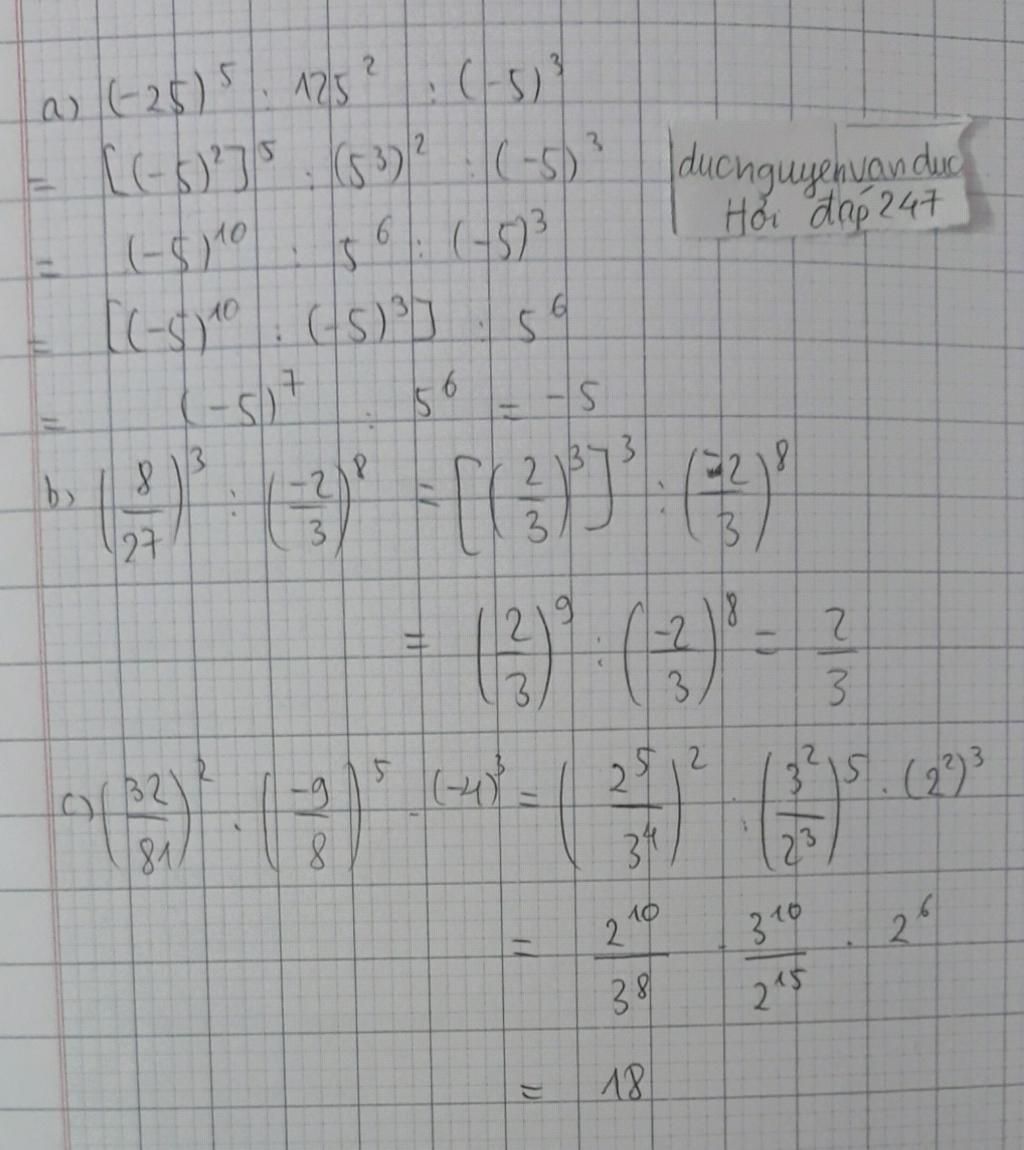 a) (-25)⁵ : 125² : (-5)³
= [(-5)²]⁵ : (5³)² : (-5)³
= (-5)¹⁰ : 5⁶ : (-5)³
= [(-5)¹⁰ : (-5)³] : 5⁶
= (-5)⁷ : 5⁶ = -5
ducnguyenvanduc
Hỏi đáp 247
b) (8/27)³ : (-2/3)⁸ = [(2/3)³]³ : (-2/3)⁸
= (2/3)⁹ : (-2/3)⁸ = 2/3
c) (32/81)² . (-9/8)⁵ . (-4)³ = (2⁵/3⁴)² . (3²/2³)⁵ . (2²)³
= 2¹⁰/3⁸ . 3¹⁰/2¹⁵ . 2⁶
= 18